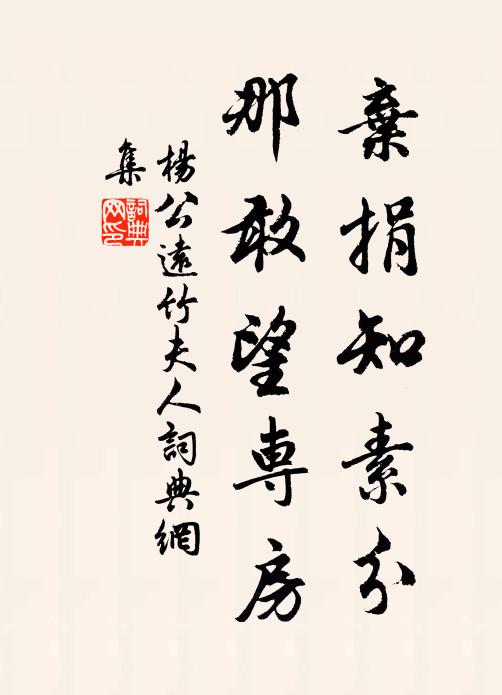 棄捐知素分
那敢望専房
楊公遠竹夫人詞典網
集
詞典
网印